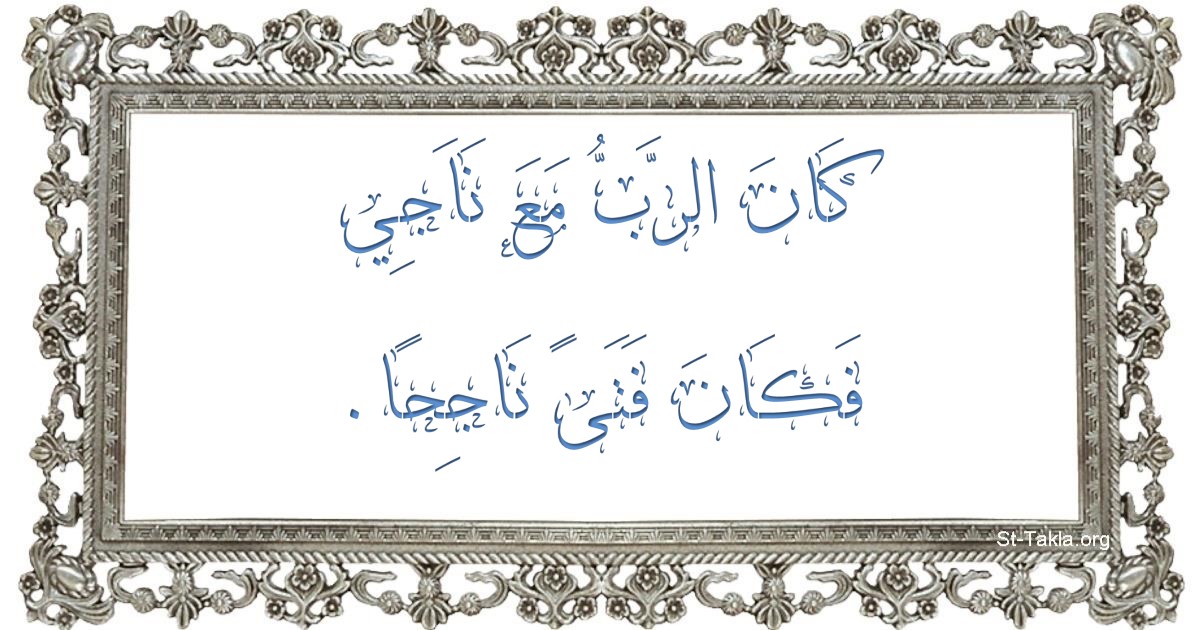 كَانَ الرَّبُّ مَعَ نَاجِي
فَكَانَ فَتَىً نَاجِحًا .
St-Takla.org